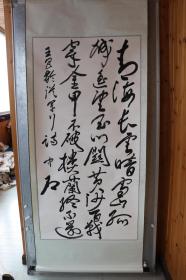 青海長雲暗雪山孤
城遥望玉門關黄沙百戰
穿金甲不破樓蘭終不還
王昌齡從軍行詩 中石